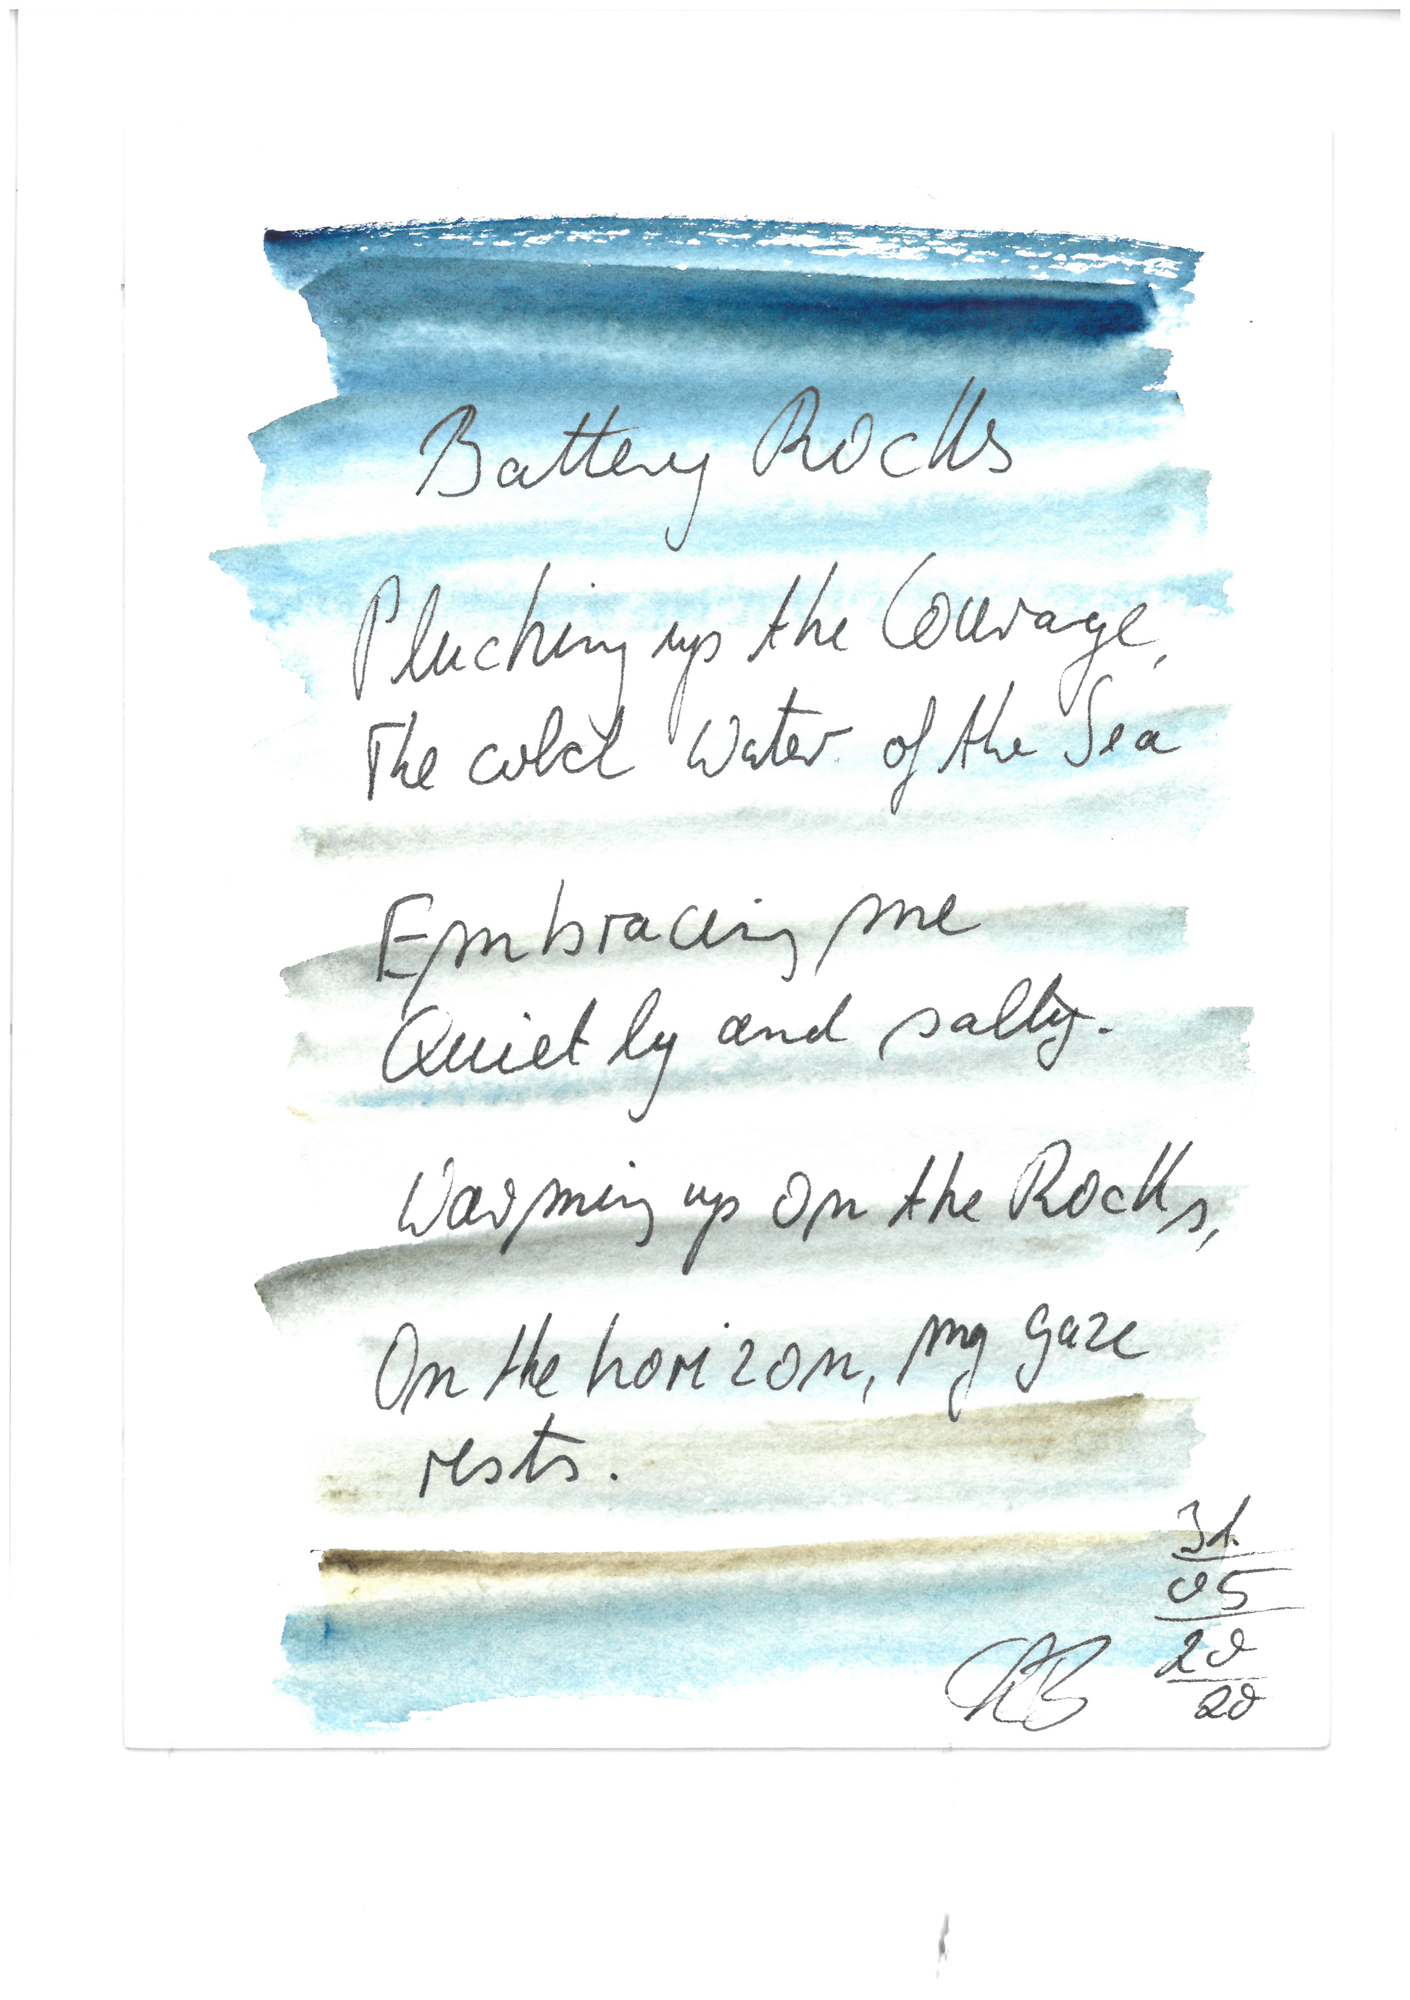 Battery Rocks
Plucking up the Courage,
The cold Water of the Sea
Embracing me
Quietly and salty.
Warming up on the Rocks,
On the horizon, my gaze
rests.
31
05
20
20